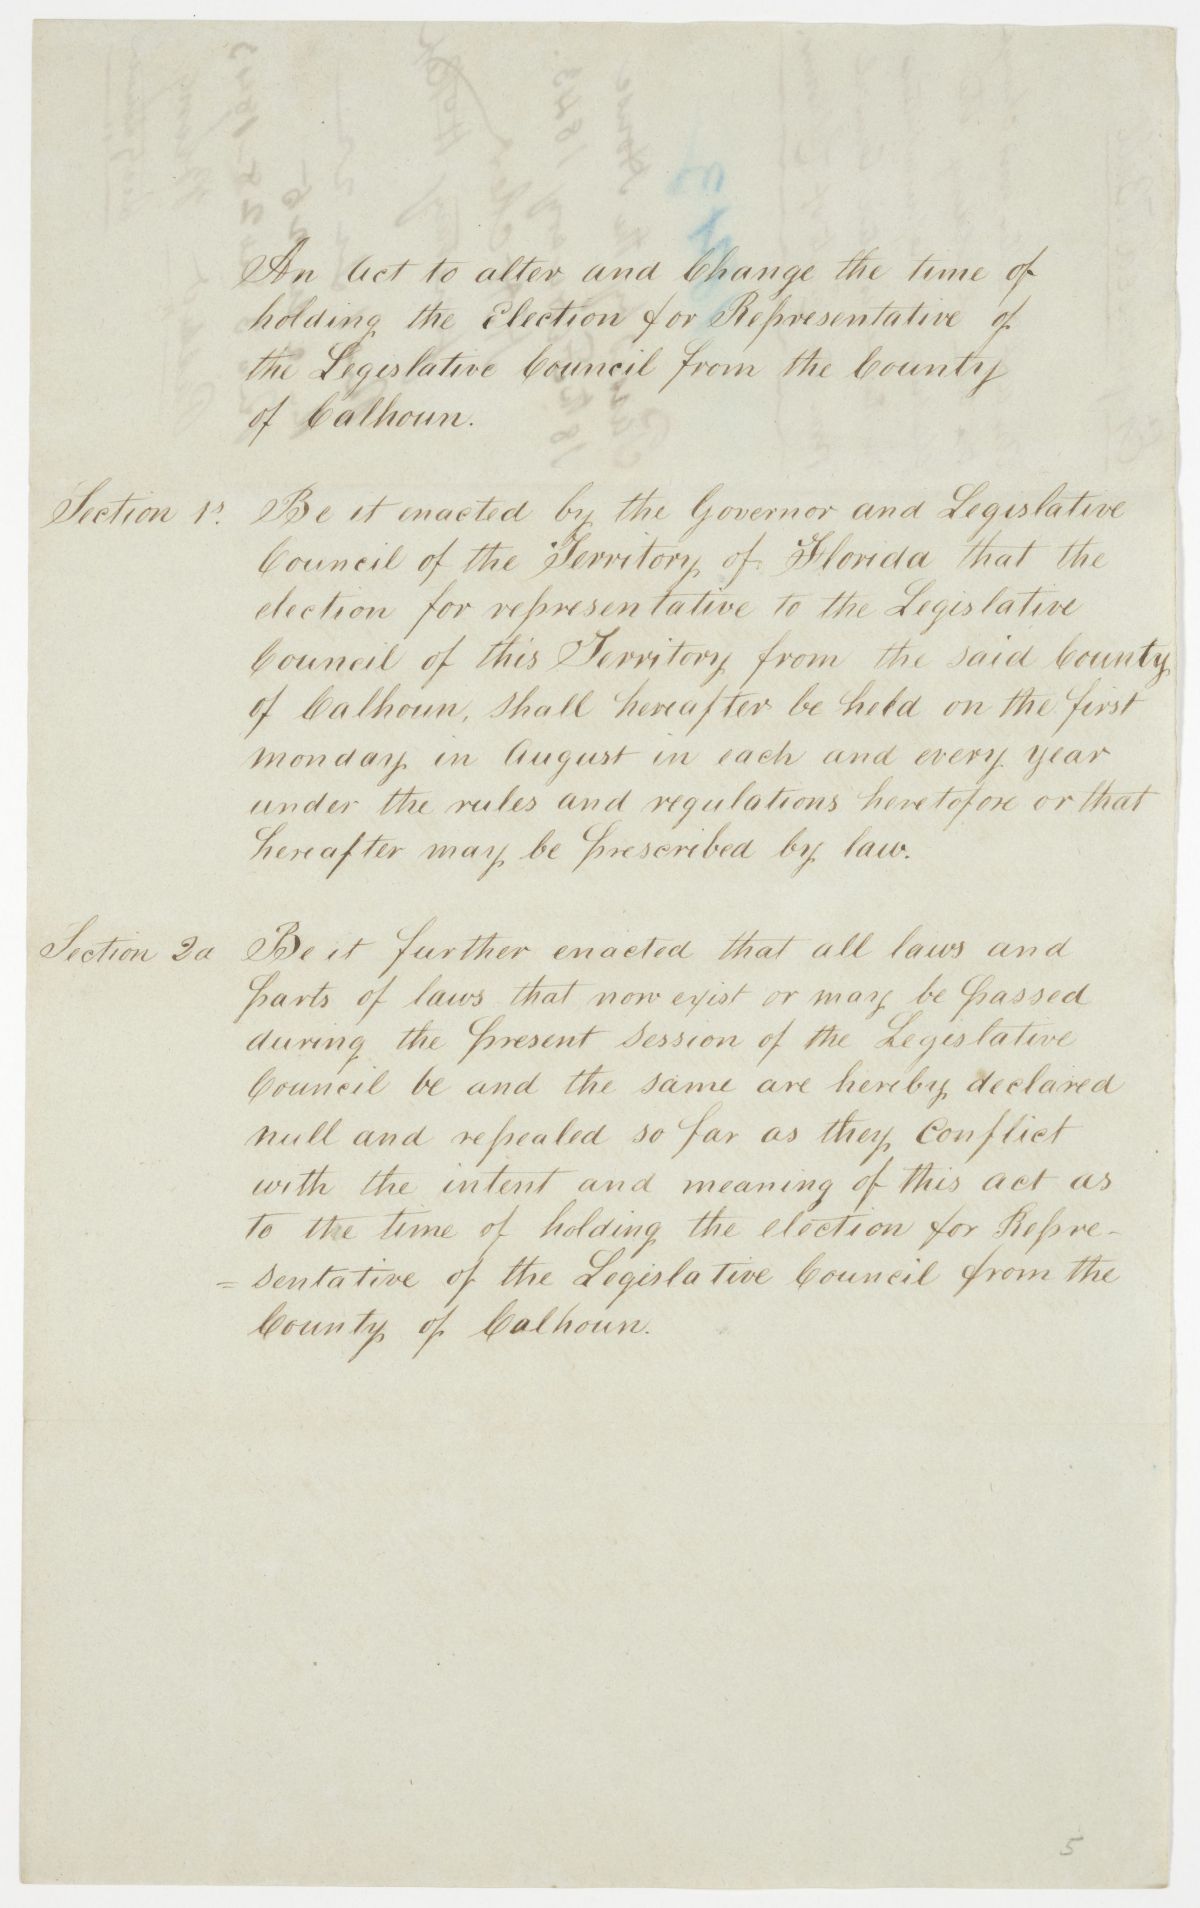 An Act to alter and Change the time of
holding the Election for Representative of
the Legislative Council from the County
of Calhoun.
Section 1s. Be it enacted by the Governor and Legislative
Council of the Territory of Florida that the
election for representative to the Legislative
Council of this Territory from the said County
of Calhoun, shall hereafter be held on the first
monday in August in each and every year
under the rules and regulations heretofore or that
hereafter may be prescribed by law.
Section 2d Be it further enacted that all laws and
parts of laws that now exist or may be passed
during the present Session of the Legislative
Council be and the same are hereby declared
null and repealed so far as they Conflict
with the intent and meaning of this act as
to the time of holding the election for Repre-
=sentative of the Legislative Council from the
County of Calhoun.
5